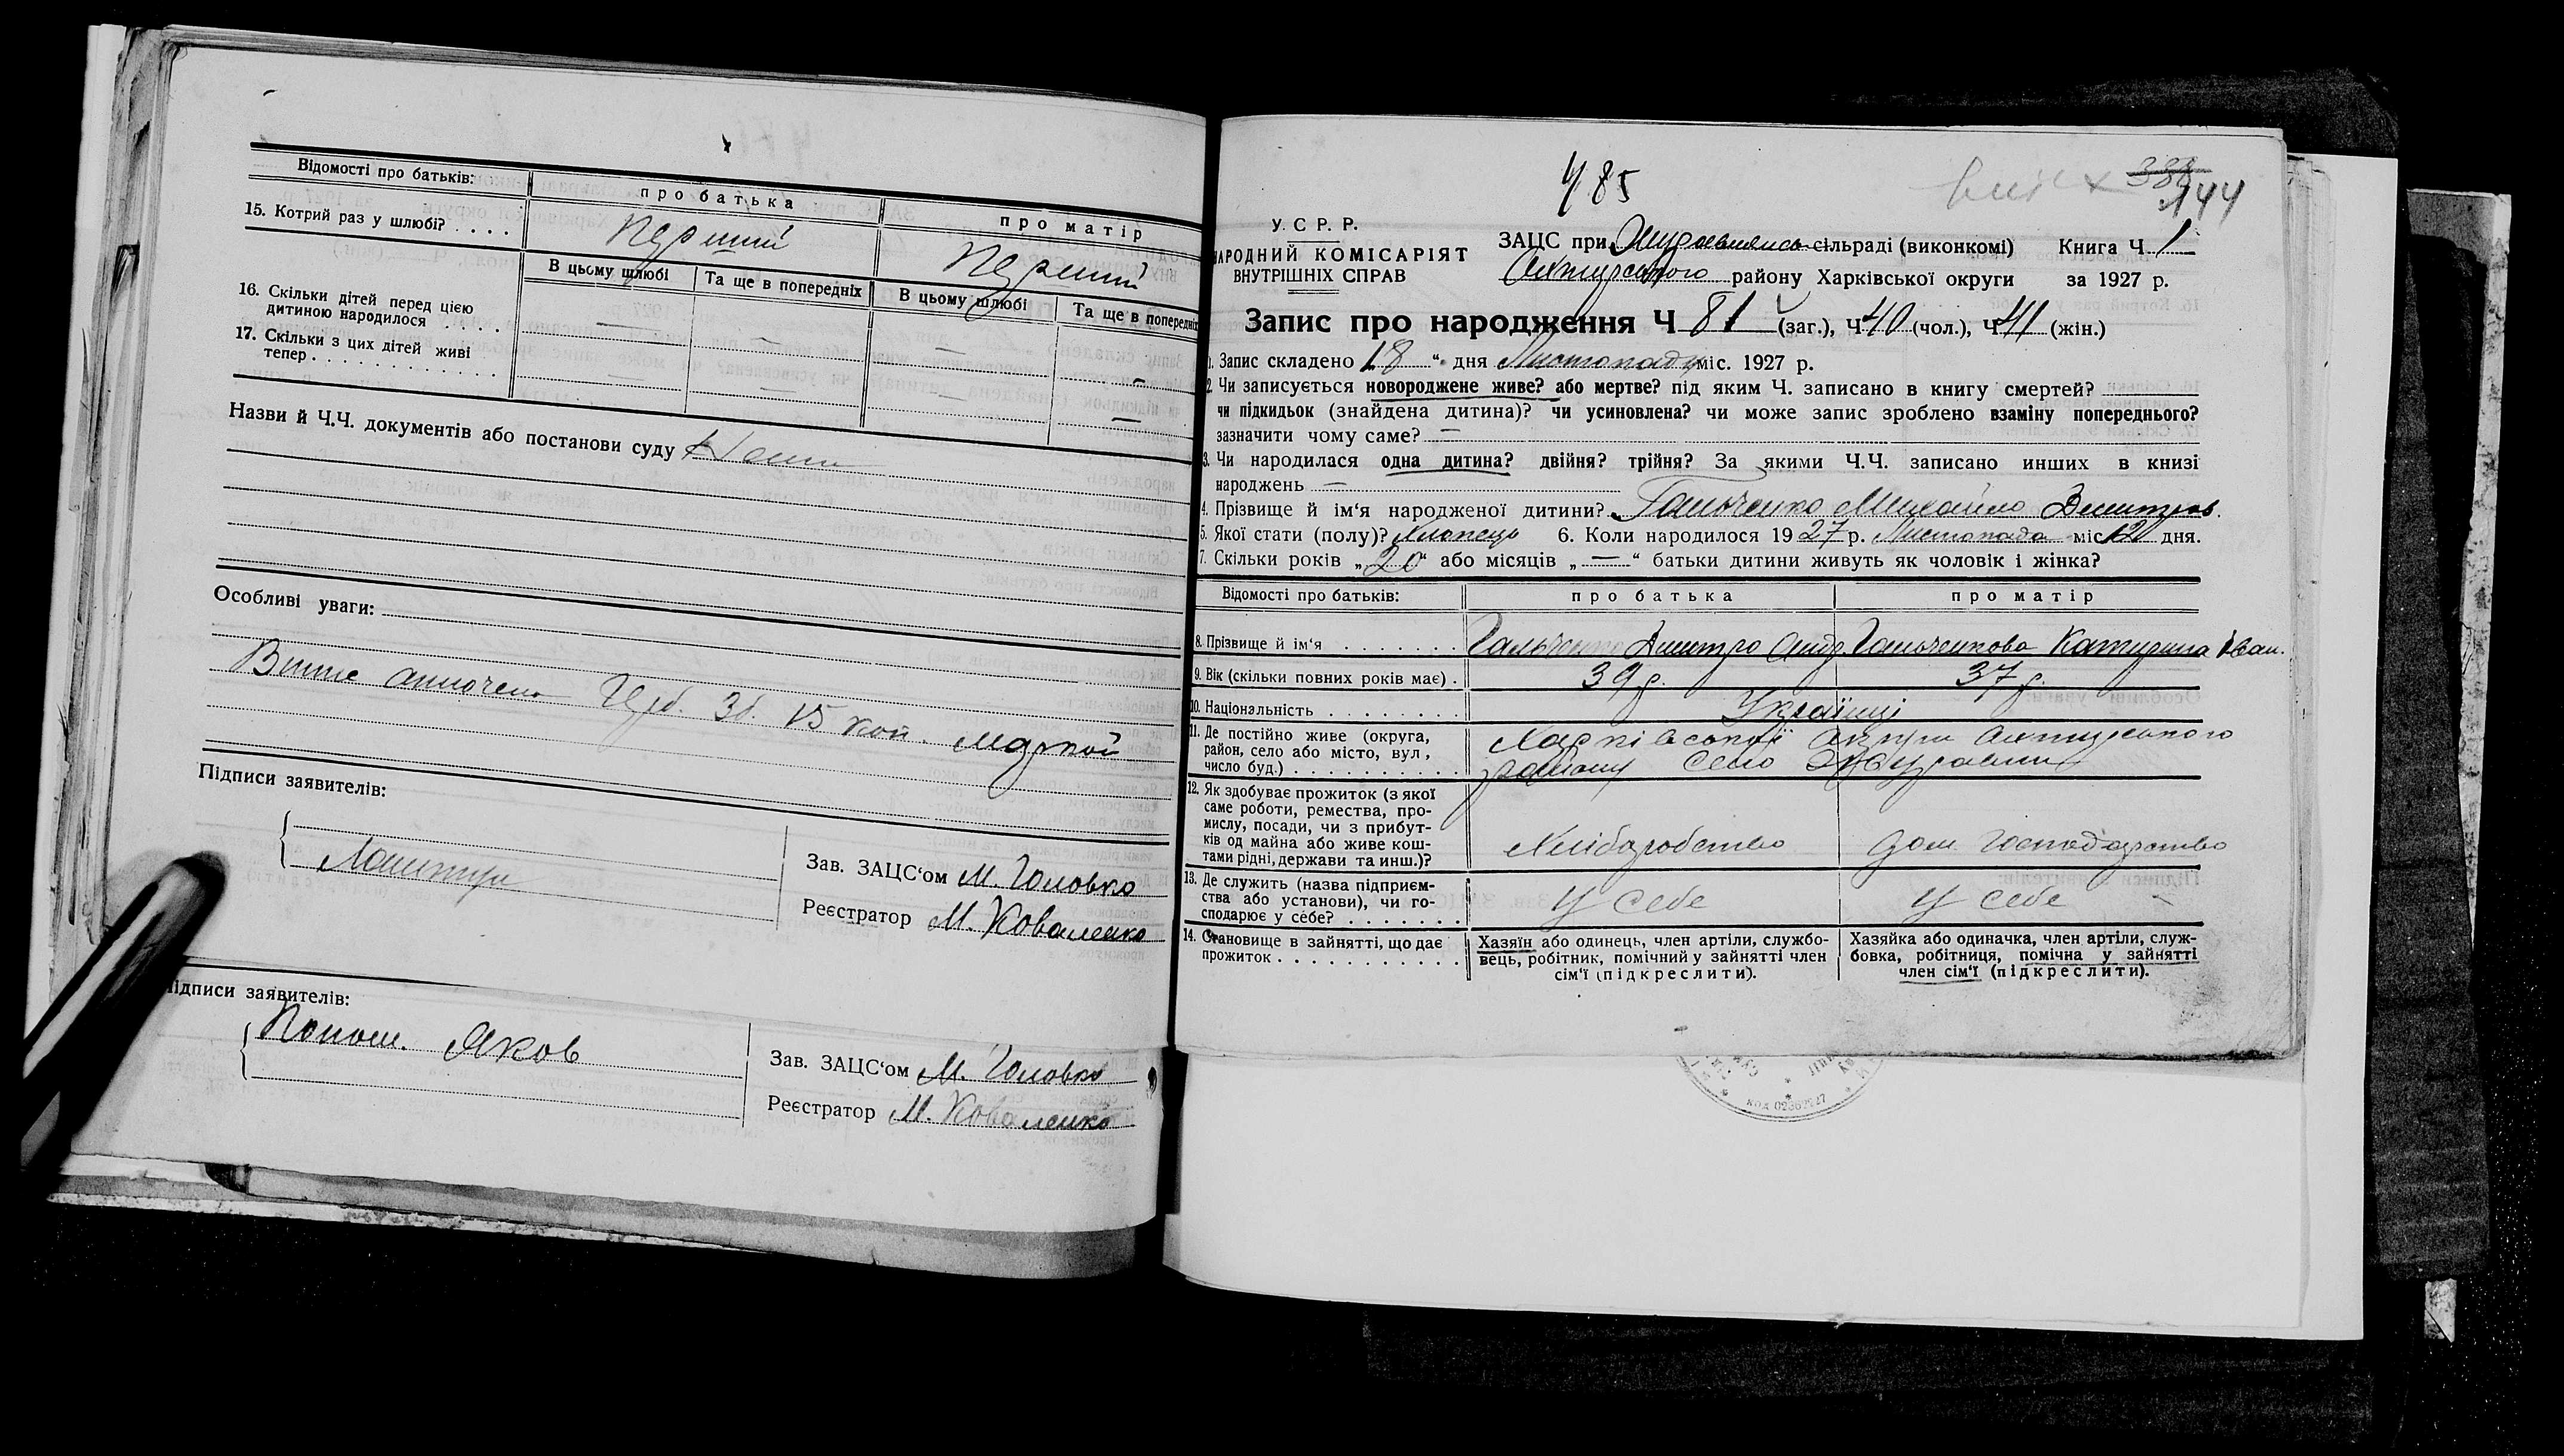 Відомості про батьків:
про батька
про матір
15. Котрий раз у шлюбі? . . . .
Перший
Перший
В цьому шлюбі
Та ще в попередніх
В цьому шлюбі
Та ще в попередніх
16. Скільки дітей перед цією
дитиною народилося . . . .
— — — —
17. Скільки з цих дітей живі
тепер . . . . . . . . . . .
— — — —
Назви й Ч.Ч. документів або постанови суду
Особливі уваги:
Герб. Зб. 15 коп. маркой
Підписи заявителів:
Зав. ЗАЦС‘ом М. Головко
Реєстратор М. Коваленко
Підписи заявителів:
Яков
Зав. ЗАЦС‘ом М. Головко
Реєстратор М. Коваленко
485
388
144
У. С. Р. Р.
НАРОДНИЙ КОМІСАРІЯТ
ВНУТРІШНІХ СПРАВ
ЗАЦС при Журавлянсь сільраді (виконкомі) Книга Ч. 1
Охтирського району Харківської округи за 1927 р.
Запис про народження Ч 81 (заг.), Ч 40 (чол.), Ч 41 (жін.)
1. Запис складено 18 “ дня Листопаду міс. 1927 р.
2. Чи записується новороджене живе? або мертве? під яким Ч. записано в книгу смертей?
чи підкидьок (знайдена дитина)? чи усиновлена? чи може запис зроблено взаміну попереднього?
зазначити чому саме? —
3. Чи народилася одна дитина? двійня? трійня? За якими Ч.Ч. записано инших в книзі
народжень —
4. Прізвище й ім‘я народженої дитини? Гальченко Михайло Дмитров.
5. Якої стати (полу)? Хлопець 6. Коли народилося 1927 р. Листопада міс 12 дня.
7. Скільки років „20“ або місяців „—“ батьки дитини живуть як чоловік і жінка?
Відомості про батьків:
про батька
про матір
8. Прізвище й ім‘я . . . . . . .
Гальченко Дмитро Андр.
Гальченкова Катерина Іван.
9. Вік (скільки повних років має) .
39 р.
37 р.
10. Національність . . . . . . . .
Українці
11. Де постійно живе (округа,
район, село або місто, вул,
число буд.) . . . . . . . . . . .
Харківської округи Охтирського
району Село Журавли
12. Як здобуває прожиток (з якої
саме роботи, ремества, про-
мислу, посади, чи з прибут-
ків од майна або живе кош-
тами рідні, держави та инш.)?
Хліборобство
дом господарство
13. Де служить (назва підприєм-
ства або установи), чи го-
сподарює у себе? . . . . . . .
У себе
У себе
14. Становище в зайнятті, що дає
прожиток . . . . . . . . . . .
Хазяїн або одинець, член артіли, службо-
вець, робітник, помічний у зайнятті член
сім‘ї (підкреслити).
Хазяйка або одиначка, член артіли, служ-
бовка, робітниця, помічна у зайнятті
член сім‘ї (підкреслити).